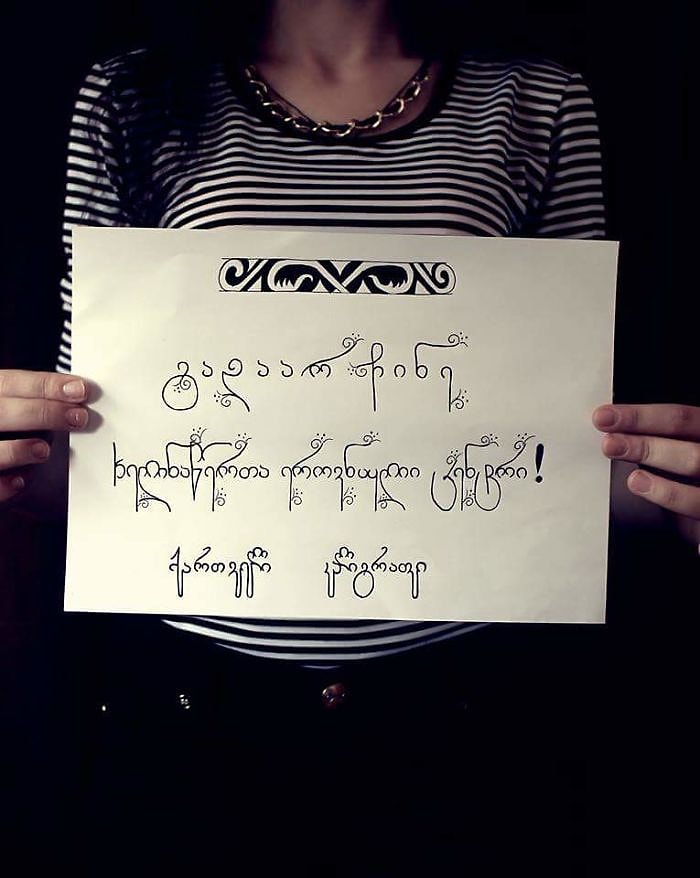 გადაარჩინე
ხელნაწერთა ეროვნული ცენტრი!
ქართველი კალიგრაფი